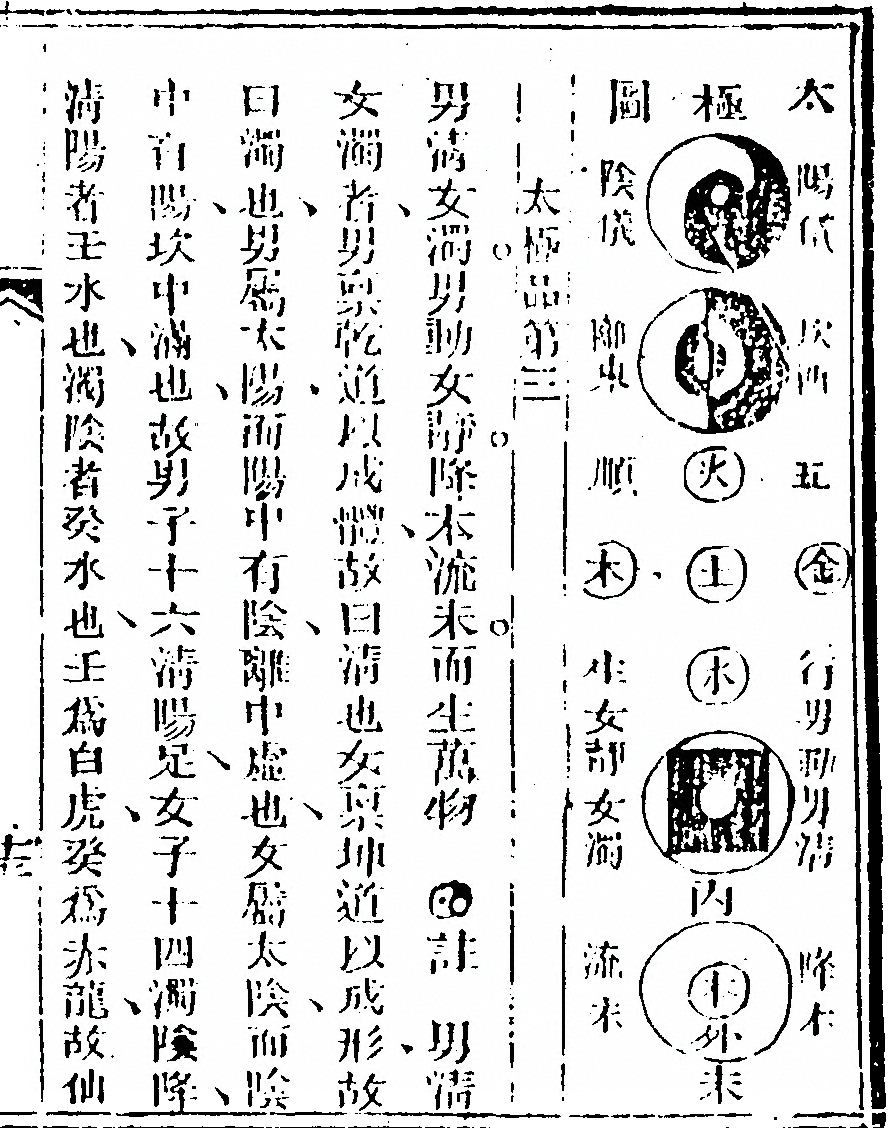 太極圖
陽儀
坎西
五
金
行男動男清
降本
火
土
水
內
本
外
末
陰儀
離東
順
木
生女靜女濁
流末
太極品第三
男清女濁男動女靜降本流末而生萬物 註 男清
女濁者男稟乾道以成體故曰清也女稟坤道以成形故
曰濁也男屬太陽而陽中有陰離中虛也女屬太陰而陰
中有陽坎中滿也故男子十六清陽足女子十四濁陰降
清陽者壬水也濁陰者癸水也壬爲白虎癸爲赤龍故仙